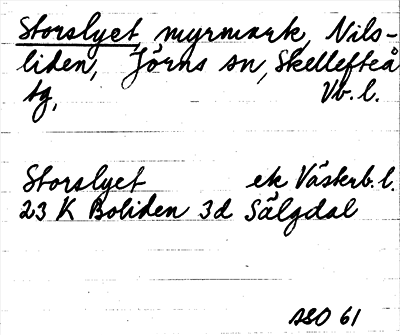 Storslyet, myrmark, Nils-
liden, Jörns sn, Skellefteå
tg, Vb. l.
Storslyet ek Västerb. l.
23 K Boliden 3d Sälgdal
ASO 61